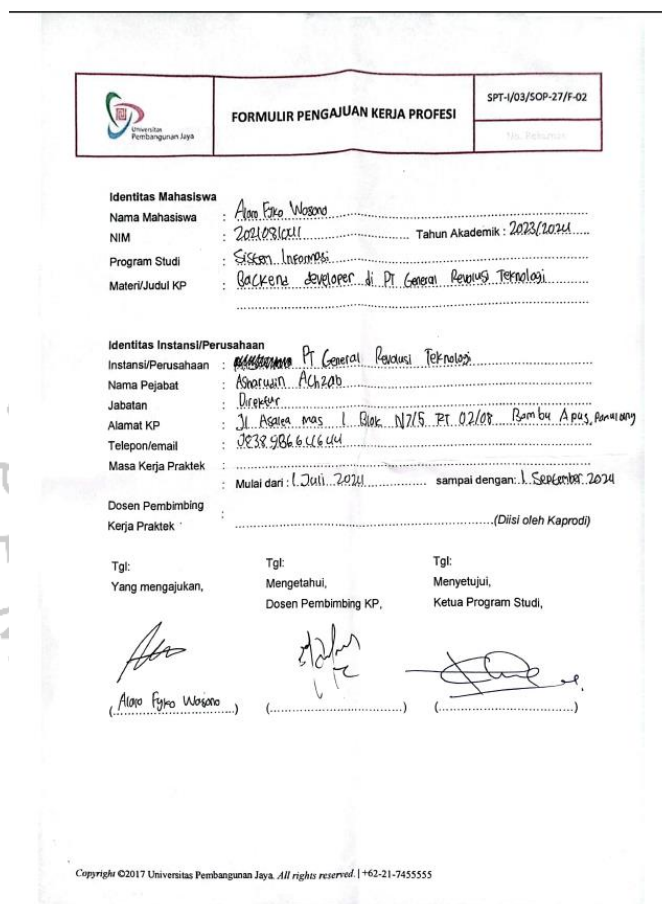 Universitas
Pembangunan Jaya
FORMULIR PENGAJUAN KERJA PROFESI
SPT-I/03/SOP-27/F-02
No. Rekaman
Identitas Mahasiswa
Nama Mahasiswa : Wosono
NIM : Tahun Akademik : 2023/2024
Program Studi : Sistem Informasi
Materi/Judul KP : Backend developer di PT General Revolusi Teknologi
Identitas Instansi/Perusahaan
Instansi/Perusahaan : PT General Revolusi Teknologi
Nama Pejabat : Asharuin Achzab
Jabatan : Direktur
Alamat KP : Jl Asalea mas 1 Blok N7/5 RT 02/08 Bambu Apus, Pamulang
Telepon/email :
Masa Kerja Praktek :
: Mulai dari : 1 Juli 2024 sampai dengan: 1 September 2024
Dosen Pembimbing
Kerja Praktek : (Diisi oleh Kaprodi)
Tgl: Tgl: Tgl:
Yang mengajukan, Mengetahui, Menyetujui,
Dosen Pembimbing KP, Ketua Program Studi,
( Wosono ) ( ) ( )
Copyright ©2017 Universitas Pembangunan Jaya. All rights reserved. | +62-21-7455555